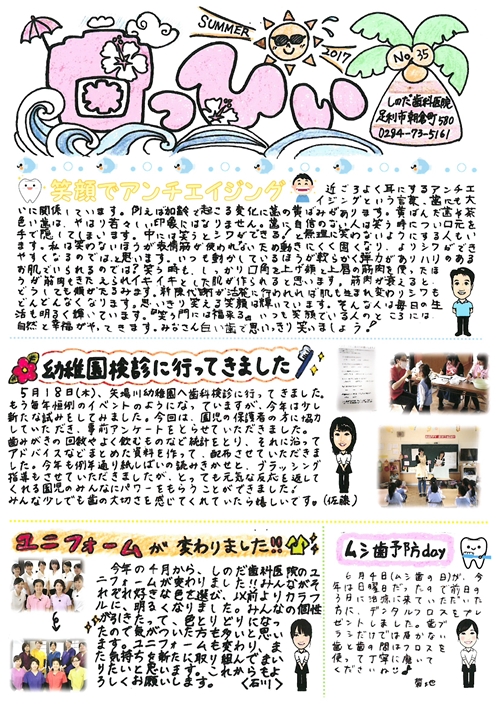 SUMMER
2017
ロっぴぃ
No.35
しのだ歯科医院
足利市朝倉町580
0284-73-5161
笑顔でアンチエイジング
近ごろよく耳にするアンチエ
イジングという言葉、歯にも大
いに関係しています。例えば加齢で起こる変化に歯の黄ばみがあります。黄ばんだ歯や茶
色い歯は、やはり若々しい印象にはなりません。歯に自信のない人は笑う時につい口元を
手で隠してしまいます。中には笑うとシワができると無理に笑わない人もいるようで
す。私は笑わないほうが表情筋が使われないため動きにくく固くなり、よりシワができ
やすくなるのでは、と思います。いつも動かしているほうが軟らかく弾力がありハリのある
お肌でいられるのでは?笑う時も、しっかり口角を上げ頬と上唇の筋肉を使ったほ
うが筋肉もきたえられイキイキとした肌が作られると思います。筋肉が衰えると、
どうしても頬がたるみます。新陳代謝が活発に行われれば肌も生まれ変わりシワも
どんどんなくなります。思いっきり笑える笑顔は輝いています。そんな人は毎日の生
活も明るく輝いています。『笑う門には福来る』いつも笑顔でいる人のところには
自然と幸福がやってきます。みなさん白い歯で思いっきり笑いましょう!
幼稚園検診に行ってきました
5月18日(木)、矢場川幼稚園へ歯科検診に行ってきました。
もう毎年恒例のイベントのようになっていますが、今年は少し
新たな試みもしてみました。今回は、園児の保護者の方に協力
していただき、事前アンケートをとらせていただきました。
歯みがきの回数やよく飲むものなど統計をとり、それに沿って
アドバイスなどまとめた資料を作って、配布させていただきま
した。今年も例年通り紙しばいの読みきかせと、ブラッシング
指導もさせていただきましたが、とっても元気な反応を返して
くれる園児のみんなにパワーをもらうことができました。
みんな少しでも歯の大切さを感じてくれていたら嬉しいです。(佐藤)
ユニフォームが変わりました!!
今年の4月から、しのだ歯科医院のユ
ニフォームが変わりました!!みんながそ
れぞれ好きな色を選び、以前よりカラフ
ルに、明るくなりました。みんなの個性
が引きたって、色とりどりになっ
たので気がついた方も多いと思い
ます。ユニフォームも変わり、ま
た気持ちを新たに取り組んでまい
りたいと思います。これからもよ
ろしくお願いします。〈石川〉
ムシ歯予防day
6月4日(ムシ歯の日)が、今
年は日曜日だったので前日の
3日に治療に来ていただいた
方に、デンタルフロスをプレ
ゼントしました。歯ブ
ラシだけでは届かない
歯と歯の間はフロスを
使って丁寧に磨いて
くださいね♪